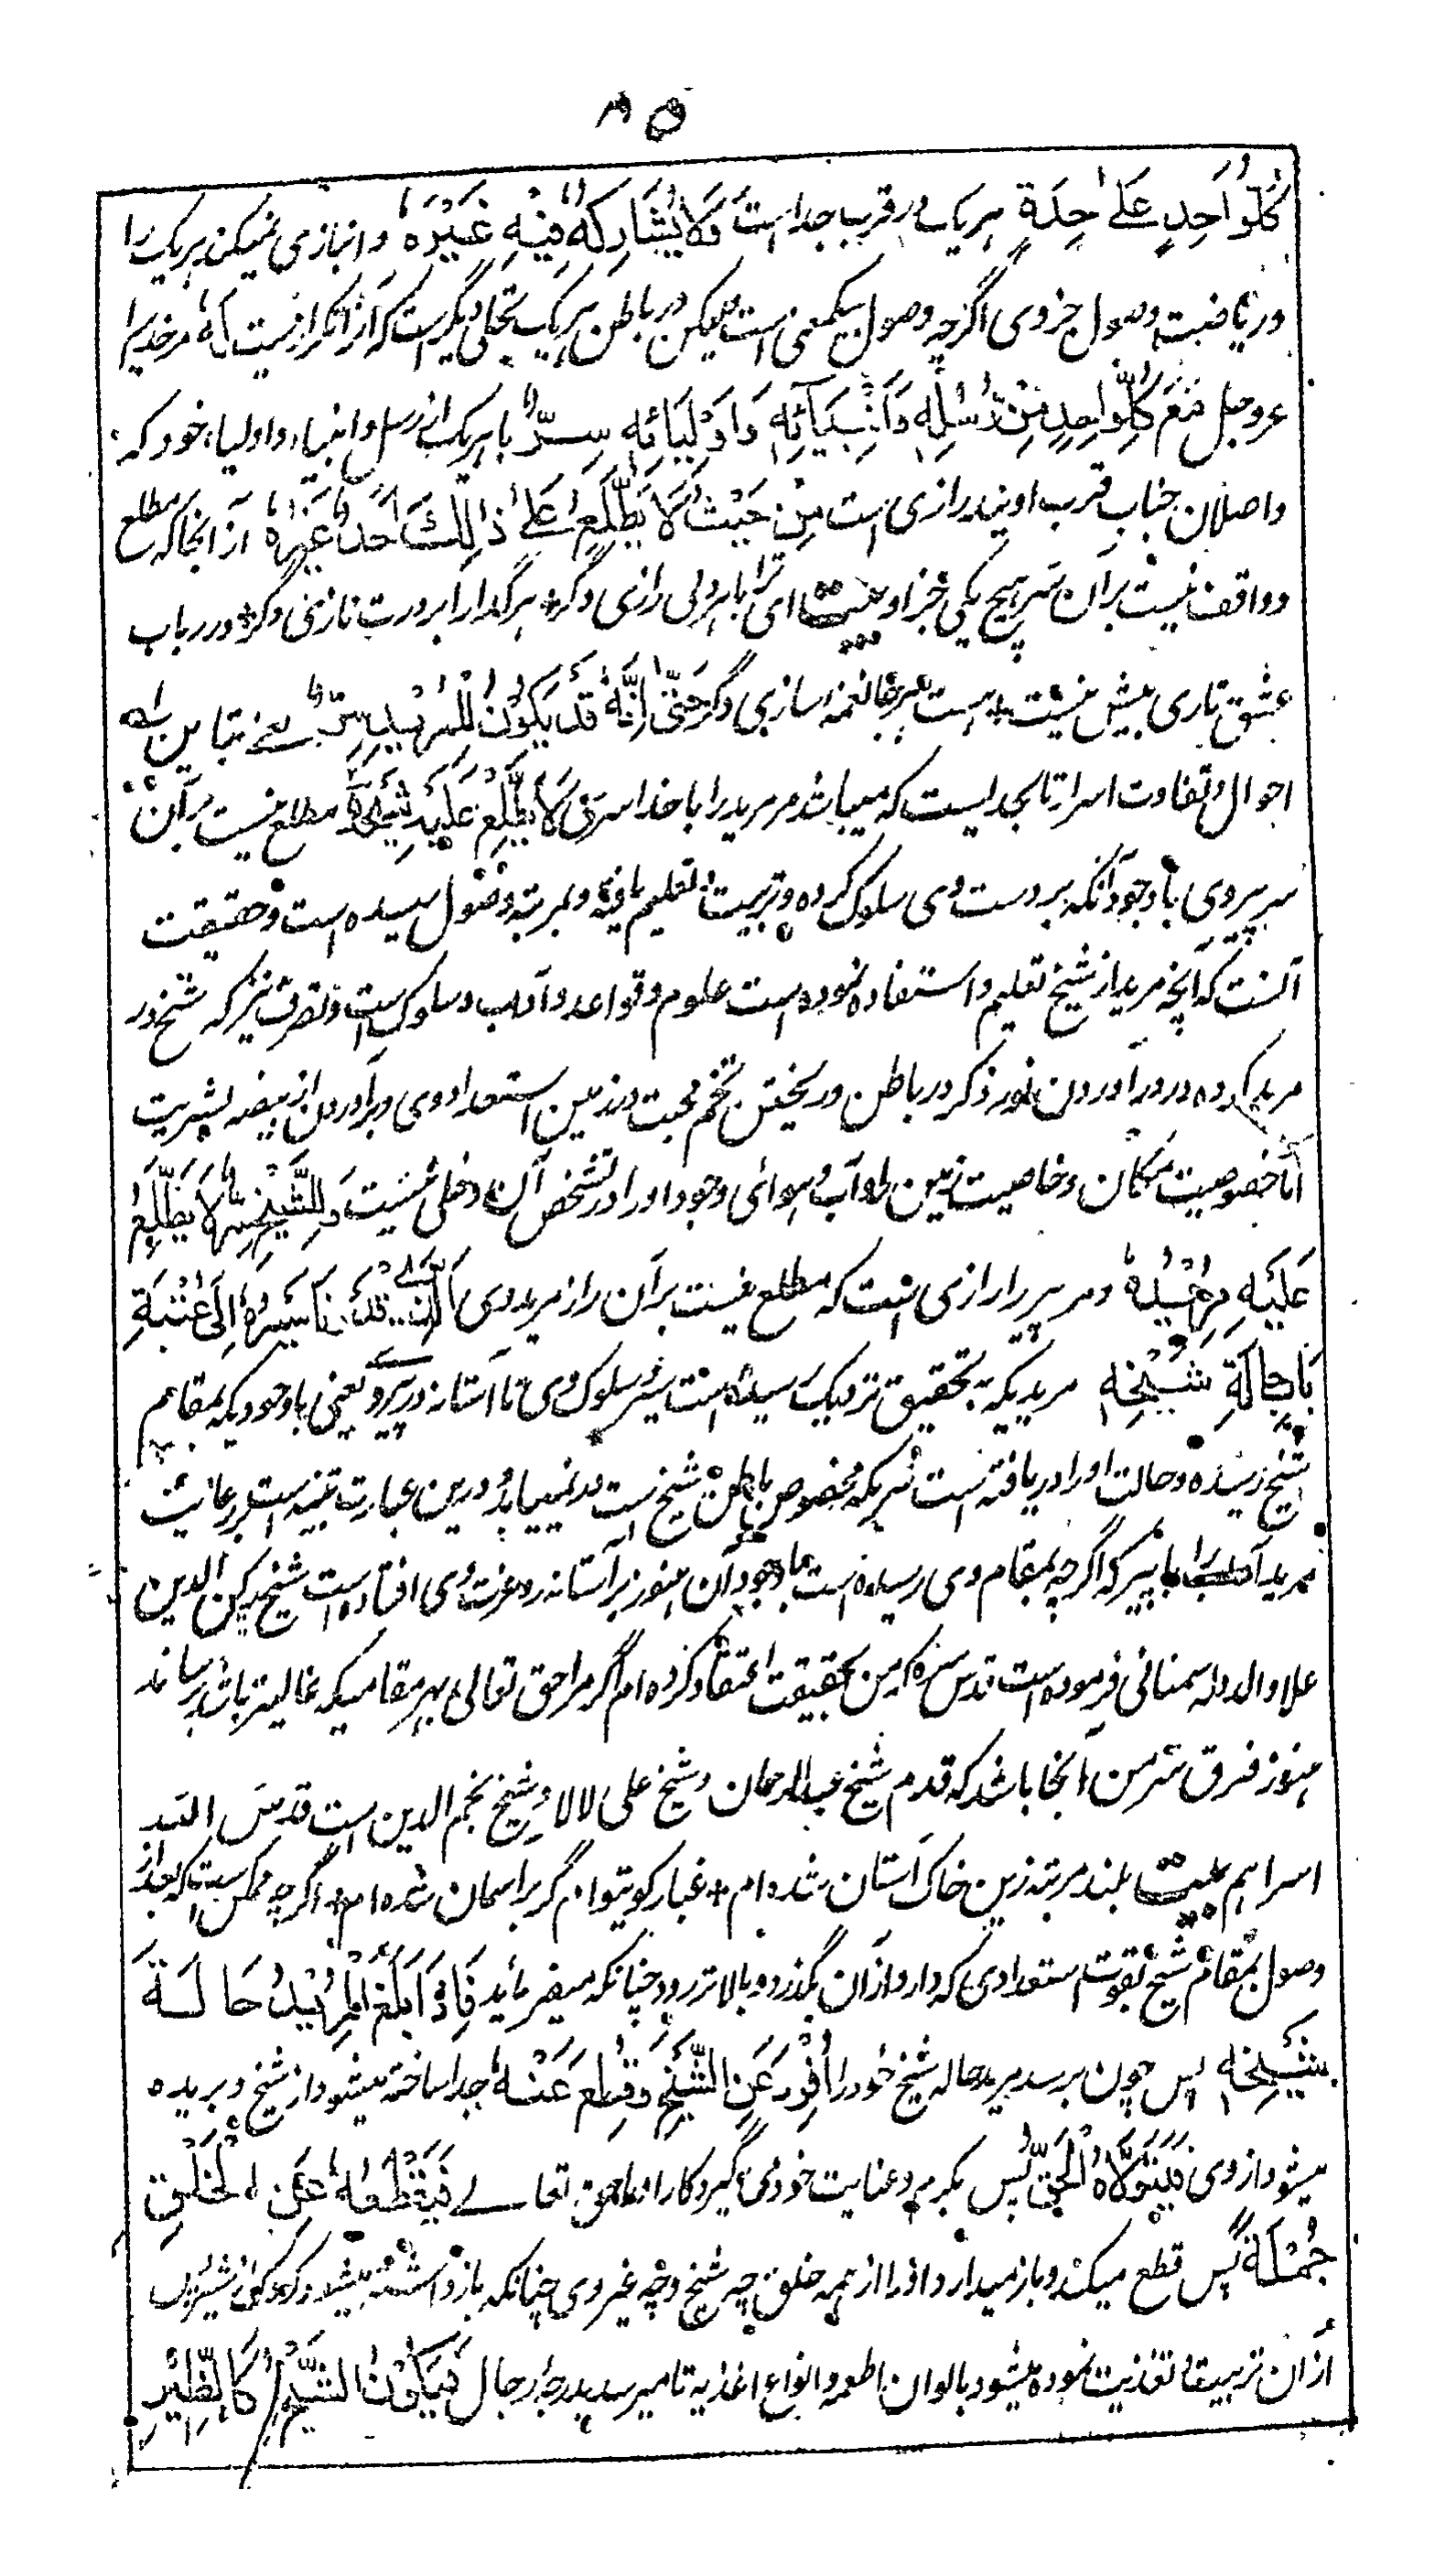 ۸۵
كُلُّ وَاحِدٍ عَلٰى حِدَةٍ ہریک در قرب جدا است فَلَا يُشَارِكُهُ فِيْهِ غَيْرُهُ و انبازی نمیکند ہریک را
در یافت وصول جزوی اگرچہ وصول بیکمعنی است لیکن در باطن ہریک تجلی دیگر است کہ آنرا تکرار نیست مر خدایرا
عز و جل مَعَ كُلِّ وَاحِدٍ مِنْ رُسُلِهٖ وَاَنْبِيَآئِهٖ وَاَوْلِيَائِهٖ سِرٌّ با ہریک از رسل و انبیاء و اولیاء خود کہ
واصلان جناب قرب اویند رازی است مِنْ حَيْثُ لَا يَطَّلِعُ عَلٰى ذٰلِكَ اَحَدٌ غَيْرُهُ از انجا کہ مطلع
و واقف نیست بر آن سر ہیچ یکی جز او بیت ای ترا با ہر دلی رازی دگر ہر گدا را بر درت نازی دگر در رباب
عشق تاری بیش نیست ہست نغمہ سازی دگر حَتّٰى اِنَّهُ قَدْ يَكُوْنُ لِلْمُرِيْدِ سِرٌّ یعنے تباین
احوال و تفاوت اسرار تا بحدیست کہ میباشد مر مرید را با خدا سری لَا يَطَّلِعُ عَلَيْهِ شَيْخُهُ مطلع نیست بر آن
سر پیر وی باوجود آنکہ بر دست وی سلوک کردہ و تربیت و تعلیم یافتہ و بمرتبہ وصول رسیدہ است و حقیقت
آنست کہ آنچہ مرید از شیخ تعلیم و استفادہ نمودہ است علوم و قواعد و آداب و سلوک است و تصرف نیز کہ شیخ در
مرید کردہ در آوردن نور ذکر در باطن و ریختن تخم محبت در زمین استعداد وی و برآوردن از بیضہ بشریت
اما خصوصیت مکان و خاصیت زمین و آب و ہوای وجود او را در تشخص آن دخلی نیست وَلِلشَّيْخِ سِرٌّ لَا يَطَّلِعُ
عَلَيْهِ مُرِيْدُهُ و مر پیر را رازی است کہ مطلع نیست بر آن راز مرید وی الَّذِيْ قَدْ دَنَا سَيْرُهُ اِلٰى عَتَبَةِ
بَابِ حَالَةِ شَيْخِهٖ مریدیکہ بتحقیق نزدیک رسیدہ است سیر و سلوک وی تا آستانہ در پیر یعنی باوجودیکہ بمقام
شیخ رسیدہ و حالت او را دریافتہ است سریکہ مخصوص باطن شیخ است در نمییابد و درین عبارت تنبیہ است بر رعایت
مرید آداب را با پیر کہ اگرچہ بمقام وی رسیدہ است باوجود آن ہنوز بر آستانہ در عزت وی افتادہ است شیخ رکن الدین
علاو الدولہ سمنانی فرمودہ است قدس سرہ کہ من بحقیقت اعتقاد کردہ ام اگر مرا حق تعالی بہر مقامیکہ عالیتر باشد برساند
ہنوز فرق سر من آنجا باشد کہ قدم شیخ عبدالرحمان و شیخ علی لالا و شیخ نجم الدین است قدس اللہ
اسرارہم بیت بلند مرتبہ زین خاک آستان شدہ ام غبار کوی توام گر بر آسمان شدہ ام و اگرچہ ممکن است کہ بعد از
وصول بمقام شیخ بقوت استعدادی کہ دارد از آن بگذرد و بالاتر رود چنانکہ میفرماید فَاِذَا بَلَغَ الْمُرِيْدُ حَالَةَ
شَيْخِهٖ پس چون برسد مرید حالہ شیخ خود را اُفْرِدَ عَنِ الشَّيْخِ وَقُطِعَ عَنْهُ جدا ساختہ میشود از شیخ و بریدہ
میشود از وی فَيَتَوَلَّاهُ الْحَقُّ پس بکرم و عنایت خود می گیرد کار او را حق تعالے فَيَقْطَعُهُ عَنِ الْخَلْقِ
جُمْلَةً پس قطع میکند و باز میدارد او را از ہمہ خلق چہ شیخ و چہ غیر وی چنانکہ باز داشتہ میشود کودکی از شیر
از ان تربیت و تغذیت نمودہ میشود بالوان اطعمہ و انواع اغذیہ تا میرسد بدرجہ رجال فَيَكُوْنُ الشَّيْخُ كَالظِّئْرِ